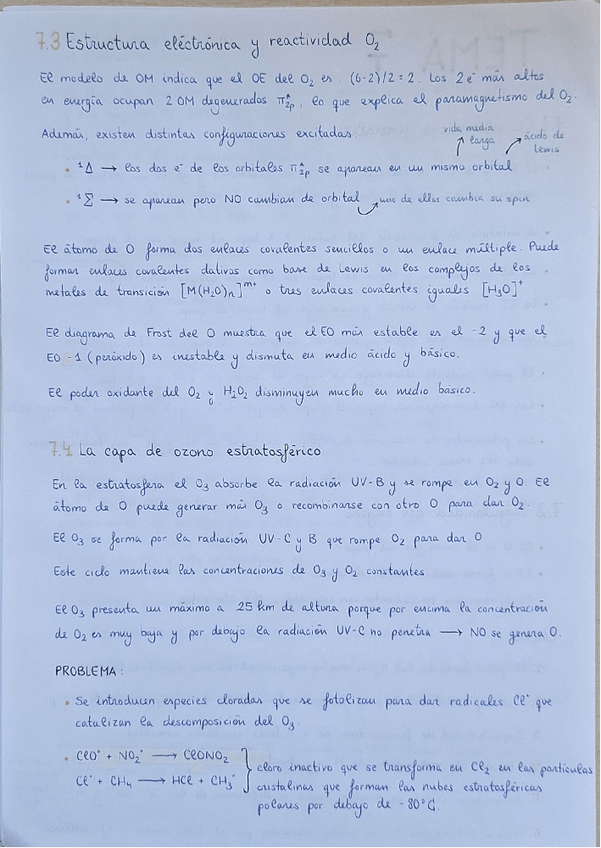 7.3 Estructura eléctrónica y reactividad O₂
El modelo de OM indica que el OE del O₂ es (6-2)/2 = 2. Los 2 e⁻ más altos
en energía ocupan 2 OM degenerados π*2p, lo que explica el paramagnetismo del O₂.
Además, existen distintas configuraciones excitadas
vida media larga
ácido de Lewis
• ¹Δ → los dos e⁻ de los orbitales π*2p se aparean en un mismo orbital
• ¹Σ → se aparean pero NO cambian de orbital
uno de ellos cambia su spin
El átomo de O forma dos enlaces covalentes sencillos o un enlace múltiple. Puede
formar enlaces covalentes dativos como base de Lewis en los complejos de los
metales de transición [M(H₂O)n]ᵐ⁺ o tres enlaces covalentes iguales [H₃O]⁺
El diagrama de Frost del O muestra que el EO más estable es el -2 y que el
EO -1 (peróxido) es inestable y dismuta en medio ácido y básico.
El poder oxidante del O₂ y H₂O₂ disminuyen mucho en medio básico.
7.4 La capa de ozono estratosférico
En la estratosfera el O₃ absorbe la radiación UV-B y se rompe en O₂ y O. El
átomo de O puede generar más O₃ o recombinarse con otro O para dar O₂.
El O₃ se forma por la radiación UV-C y B que rompe O₂ para dar O
Este ciclo mantiene las concentraciones de O₃ y O₂ constantes.
El O₃ presenta un máximo a 25 km de altura porque por encima la concentración
de O₂ es muy baja y por debajo la radiación UV-C no penetra → NO se genera O.
PROBLEMA:
• Se introducen especies cloradas que se fotolizan para dar radicales Cl· que
catalizan la descomposición del O₃.
• ClO· + NO₂· → ClONO₂
Cl· + CH₄ → HCl + CH₃·
cloro inactivo que se transforma en Cl₂ en las partículas
cristalinas que forman las nubes estratosféricas
polares por debajo de -80°C.